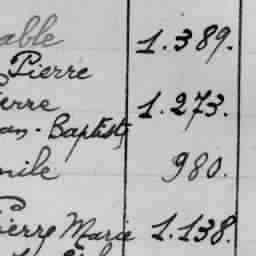 able 1.389.
Pierre
ierre 1.273.
an-Baptiste
mile 980.
Pierre Marie 1.138.